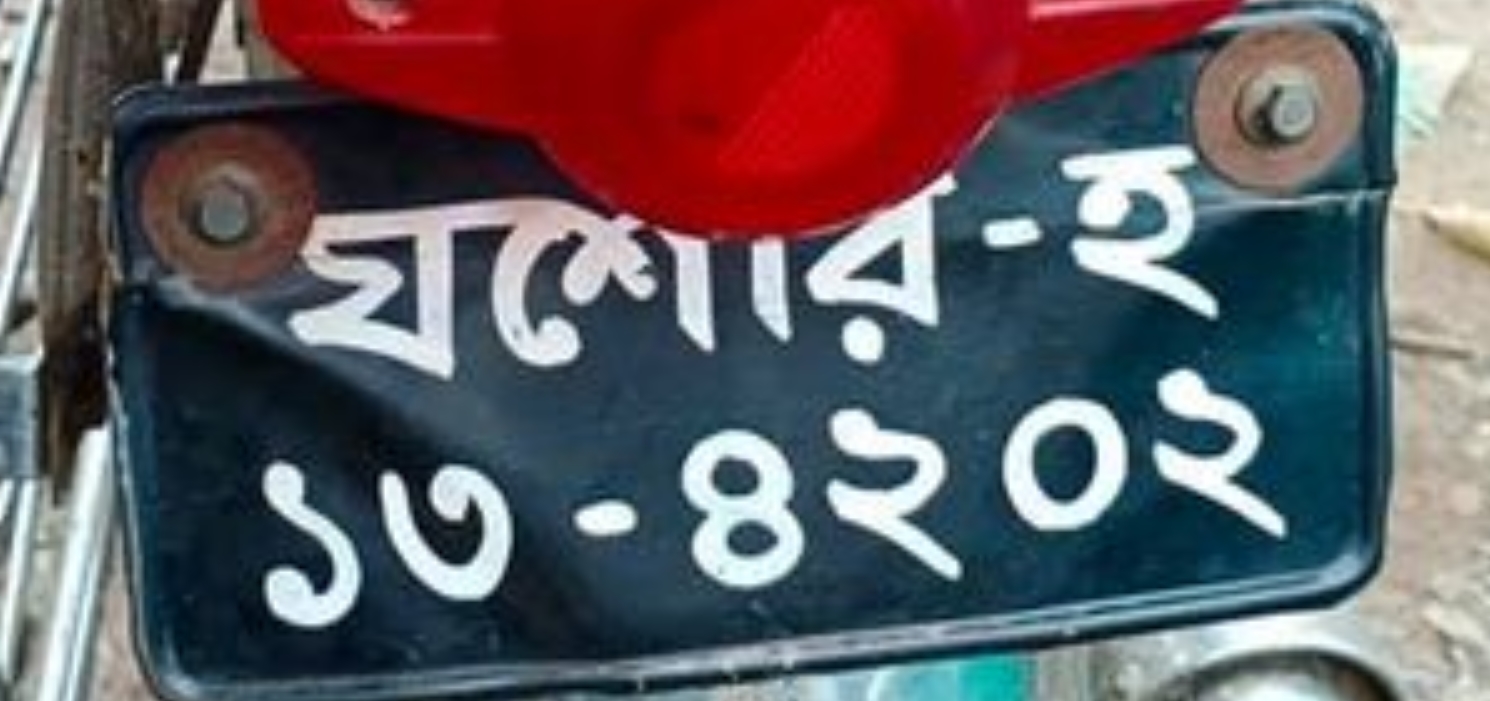 যশোর-হ
১৩-৪২০২